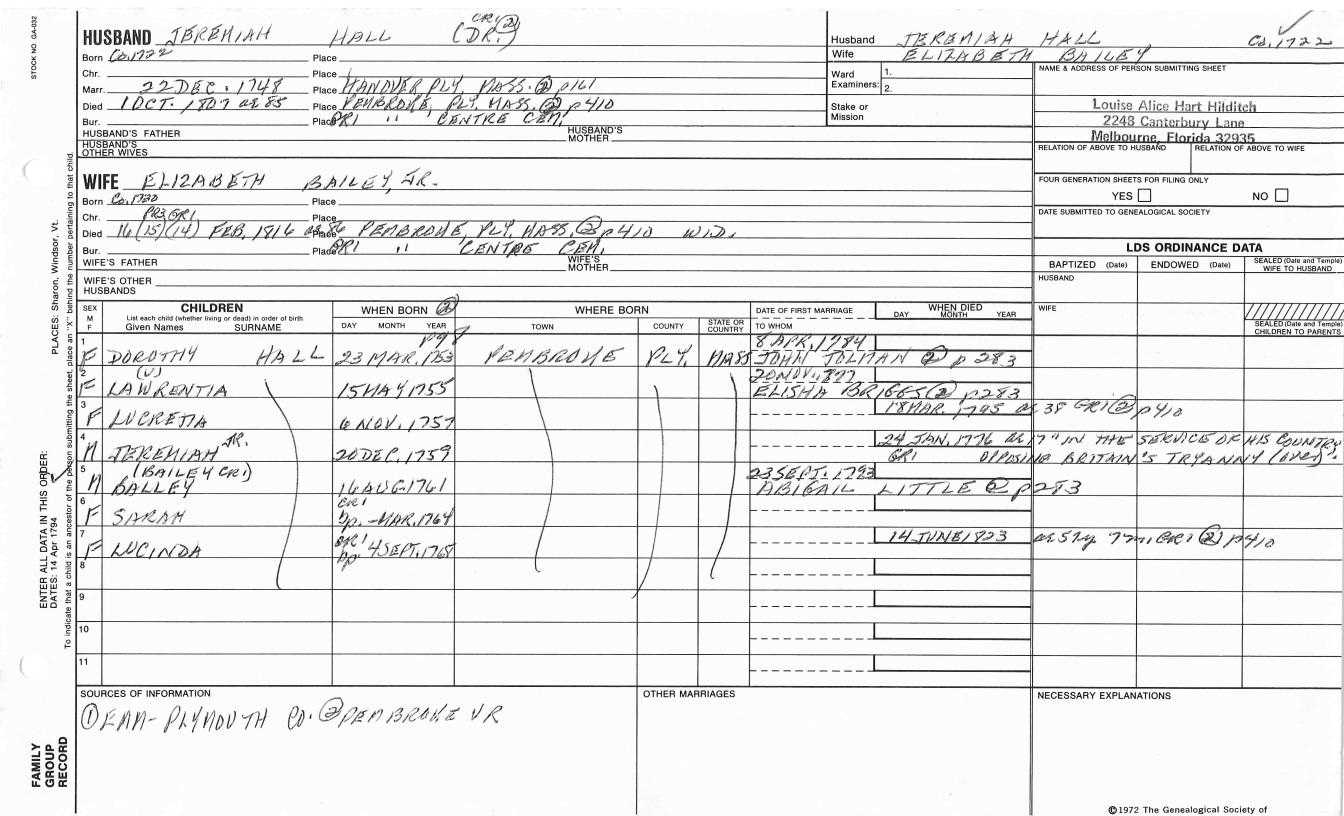 STOCK NO. GA-032
HUSBAND JEREMIAH HALL (DR.) GR1 ②
Born Ca.1722 Place
Chr. Place
Marr. 22 DEC. 1748 Place HANOVER PLY. MASS. ② p161
Died 1 OCT. 1807 ae 85 Place PEMBROKE, PLY. MASS. ② p410
Bur. Place GR1 " CENTRE CEM.
HUSBAND'S FATHER HUSBAND'S MOTHER
HUSBAND'S OTHER WIVES
Husband JEREMIAH HALL Ca.1722
Wife ELIZABETH BAILEY
Ward Examiners: 1. 2.
Stake or Mission
NAME & ADDRESS OF PERSON SUBMITTING SHEET
Louise Alice Hart Hilditch
2248 Canterbury Lane
Melbourne, Florida 32935
RELATION OF ABOVE TO HUSBAND RELATION OF ABOVE TO WIFE
FOUR GENERATION SHEETS FOR FILING ONLY
YES NO
DATE SUBMITTED TO GENEALOGICAL SOCIETY
WIFE ELIZABETH BAILEY, JR.
Born Ca.1730 Place
Chr. Place
PR3 GR1
Died 16 (15) (14) FEB. 1816 ae 86 Place PEMBROKE, PLY. MASS. ② p410 WID.
Bur. Place GR1 " CENTRE CEM.
WIFE'S FATHER WIFE'S MOTHER
WIFE'S OTHER HUSBANDS
LDS ORDINANCE DATA
BAPTIZED (Date) ENDOWED (Date) SEALED (Date and Temple) WIFE TO HUSBAND
HUSBAND
WIFE
SEALED (Date and Temple) CHILDREN TO PARENTS
SEX M F CHILDREN WHEN BORN ② WHERE BORN DATE OF FIRST MARRIAGE WHEN DIED
List each child (whether living or dead) in order of birth
Given Names SURNAME DAY MONTH YEAR TOWN COUNTY STATE OR COUNTRY TO WHOM DAY MONTH YEAR
p98
8 APR. 1784
1 F DOROTHY HALL 23 MAR. 1753 PEMBROKE PLY. MASS JOHN TOLMAN ② p283
(U)
2 F LAWRENTIA 15 MAY 1755 ELISHA BRIGGS ② p283
3 F LUCRETIA 6 NOV. 1757 18 MAR. 1795 ae 38 GR1 ② p410
4 M JEREMIAH JR. 20 DEC. 1759 24 JAN. 1776 ae 17 "IN THE SERVICE OF HIS COUNTRY
GR1 OPPOSING BRITAIN'S TRYANNY (over)".
(BAILEY GR1) 23 SEPT. 1793
5 M BALLEY 16 AUG. 1761 ABIGAIL LITTLE ② p283
GR1
6 F SARAH bp. - MAR. 1764
GR1
7 F LUCINDA bp 4 SEPT. 1768 14 JUNE 1823 GR1 ② p410
8
9
10
11
SOURCES OF INFORMATION
① EAM - PLYMOUTH CO. ② PEMBROKE VR
OTHER MARRIAGES
NECESSARY EXPLANATIONS
PLACES: Sharon, Windsor, Vt.
ENTER ALL DATA IN THIS ORDER:
DATES: 14 Apr 1794
To indicate that a child is an ancestor of the person submitting the sheet, place an "X" behind the number pertaining to that child.
FAMILY GROUP RECORD
©1972 The Genealogical Society of